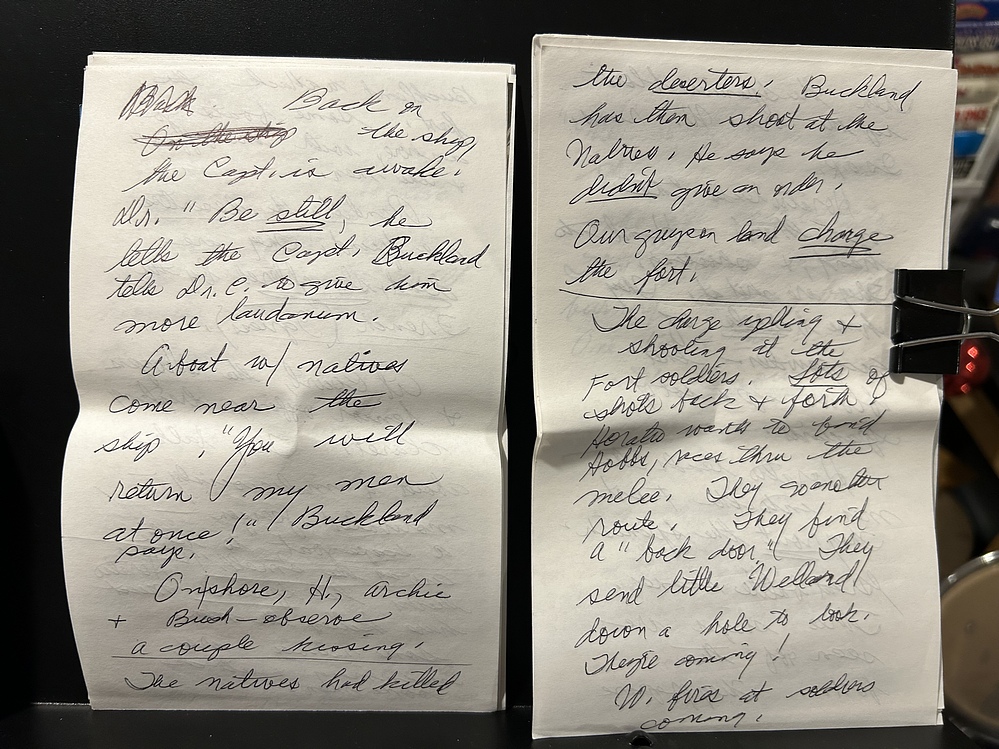 Back on
On the ship the ship,
the Capt. is awake.
Dr. "Be still, he
tells the Capt. Buckland
tells Dr. C. to give him
more laudanum.
A boat w/ natives
come near the
ship. "You will
return my men
at once!" Buckland
says.
Onshore, H, Archie
+ Bush - observe
a couple kissing.
The natives had killed
the deserters. Buckland
has them shoot at the
Natives. He says he
didn't give an order.
Our guys on land charge
the fort.
The charge yelling +
shooting at the
Fort soldiers. Lots of
shots back + forth!
Horatio wants to find
Hobbs, races thru the
melee. They go another
route. They find
a "back door"! They
send little Welland
down a hole to look.
They're coming!
W. fires at soldiers
coming.